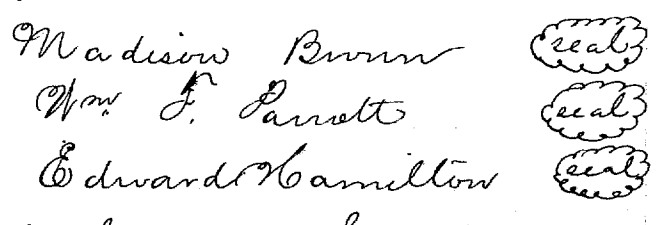 Madison Brown seal
Wm. F. Parrott seal
Edward Hamilton seal